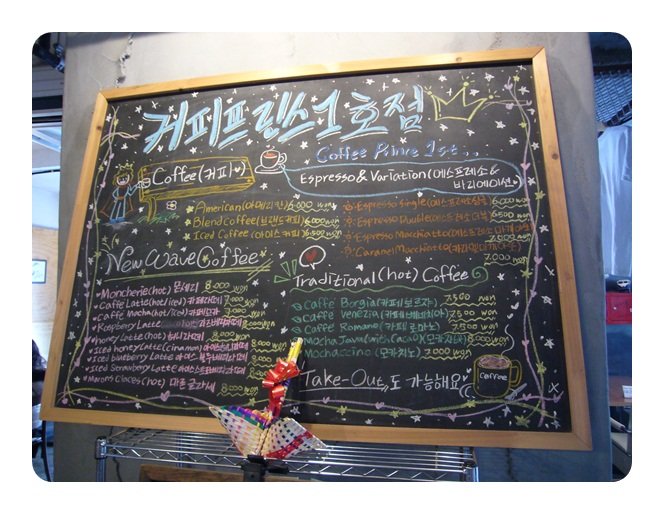 커피프린스 1호점
Coffee Prince 1st...
Coffee(커피♥)
American(아메리카노) 6,000 won
Blend Coffee(브랜드커피) 6,000 won
Iced Coffee(아이스커피) 6,500 won
Espresso & Variation(에스프레소 &
바리에이션)
Espresso Single(에스프레소싱글) 6,000 won
Espresso Double(에스프레소 더블) 6,500 won
Espresso Macchiato(에스프레소 마끼아또)
6,500 won
Caramel Macchiato(카라멜마끼아또)
7,000 won
New Wave Coffee
Moncherie(hot) 몬셰리 8,000 won
Caffé Latte(hot/iced) 카페라떼 7,000 won
Caffé Mocha(hot/iced) 카페모카
Raspberry Latte
Honey Latte(hot) 허니라떼
Iced honey Latte(cinnamon)
Iced blueberry Latte
Iced Strawberry Latte
Marron Glaces(hot) 마롱글라세 8,000 won
Traditional(hot) Coffee
Caffé Borgia(카페보르자) 7,500 won
Caffé Venezia(카페베네치아) 7,500 won
Caffé Romano(카페로마노) 7,500 won
Mocha Java(with Cacao)(모카자바) 8,000 won
Mochaccino(모카치노) 7,000 won
Take-Out 도 가능해요
Coffee